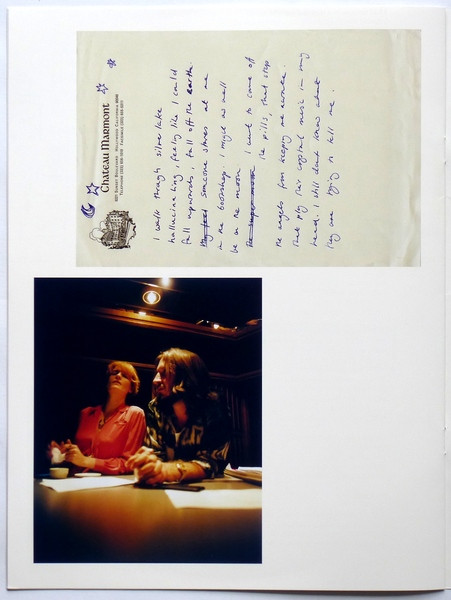 Chateau Marmont
8221 Sunset Boulevard Hollywood California 90046
I walk through silver lake
hallucinating, feeling like I could
fall upwards, fall off the earth.
someone stares at me
in the bookshop. I might as well
be on the moon. I want to come off
the pills, that stop
the angels from keeping me awake.
that play their crystal music in my
head. I still dont know what
they are trying to tell me.